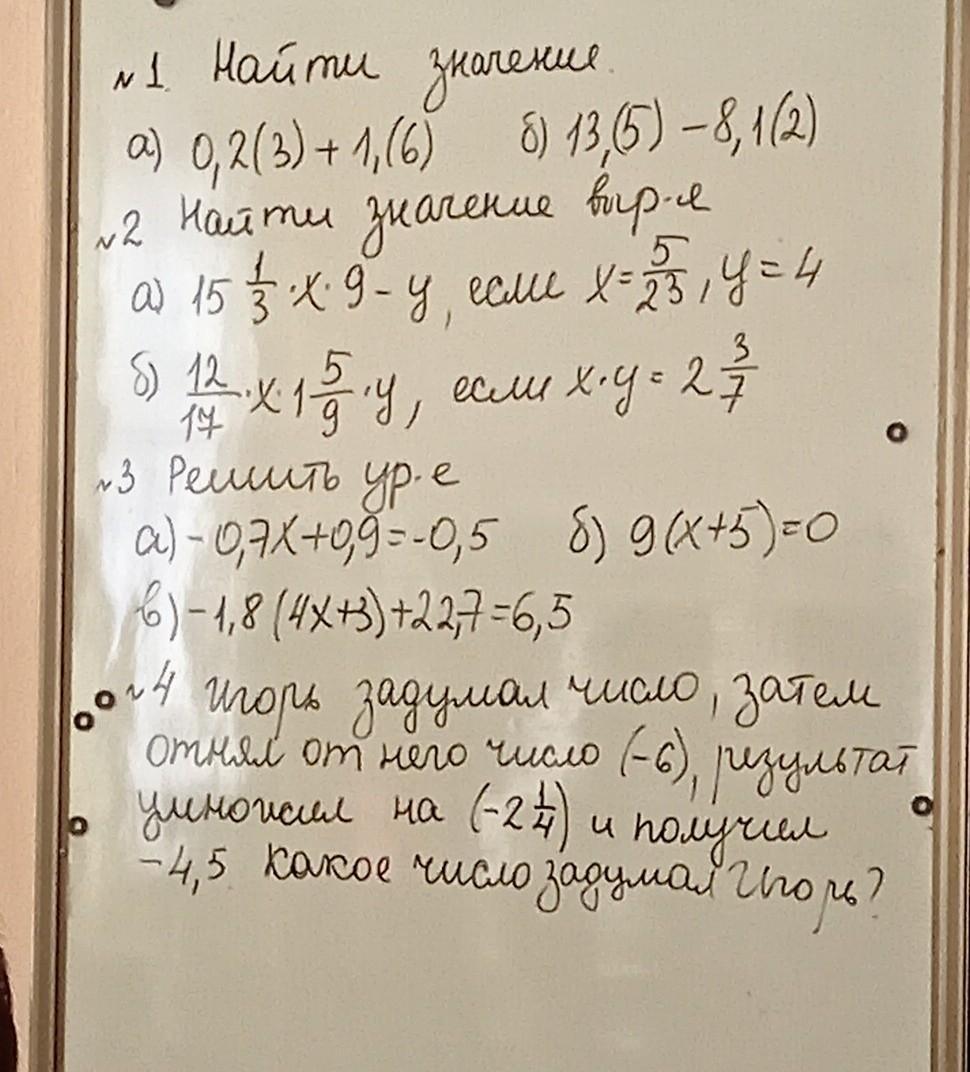 №1. Найти значение.
а) 0,2(3) + 1,(6) б) 13,(5) - 8,1(2)
№2 Найти значение выр-я
а) 15 1/3 · x · 9 - y, если x = 5/23, y = 4
б) 12/17 · x · 1 5/9 · y, если x · y = 2 3/7
№3 Решить ур-е
а) -0,7x + 0,9 = -0,5 б) 9(x+5) = 0
в) -1,8(4x+3) + 22,7 = 6,5
№4 Игорь задумал число, затем
отнял от него число (-6), результат
умножил на (-2 1/4) и получил
-4,5 Какое число задумал Игорь?